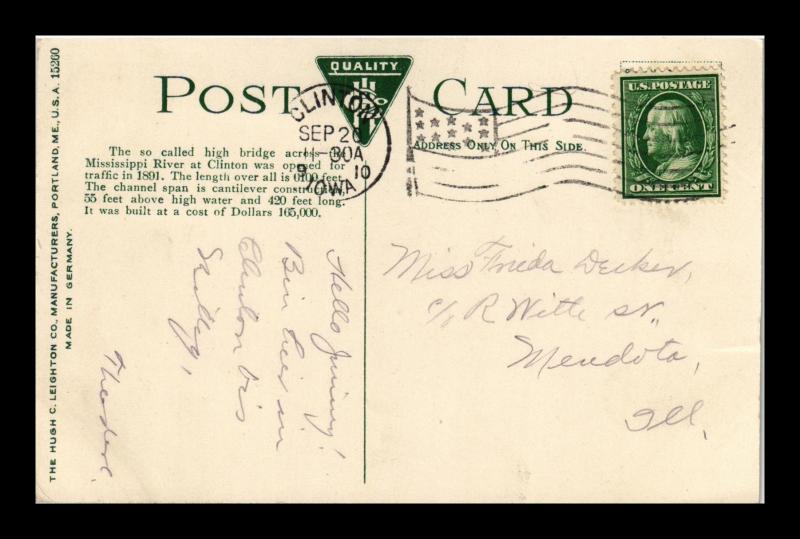 POST CARD
QUALITY
CLINTON
SEP 20
11-30A
9 10
IOWA
ADDRESS ONLY ON THIS SIDE.
U.S. POSTAGE
ONE CENT
The so called high bridge across the
Mississippi River at Clinton was opened for
traffic in 1891. The length over all is 6100 feet.
The channel span is cantilever construction,
55 feet above high water and 420 feet long.
It was built at a cost of Dollars 165,000.
THE HUGH C. LEIGHTON CO., MANUFACTURERS, PORTLAND, ME., U.S.A. 15260
MADE IN GERMANY.
Hello
in
Clinton
Theodore.
Miss Frieda Decker,
c/o R Witte sr.,
Mendota,
Ill.